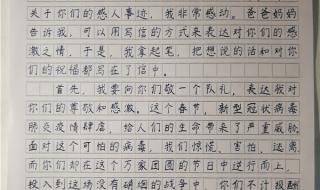 关于你们的感人事迹，我非常感动。爸爸妈妈
告诉我，可以用写信的方式来表达对你们的感
激之情，于是，我拿起笔，把想说的话和对你
们的祝福都写在了信中。
首先，我要向你们敬一个队礼，表达我对
你们的尊敬和感激。这个春节，新型冠状病毒
肺炎疫情肆虐，给人们的生命带来了严重威胁。
面对这个可怕的病毒，我们惊慌，害怕，逃离，
而你们却在这个万家团圆的节日中逆行而上，
投入到这场没有硝烟的战争中，你们不计报酬